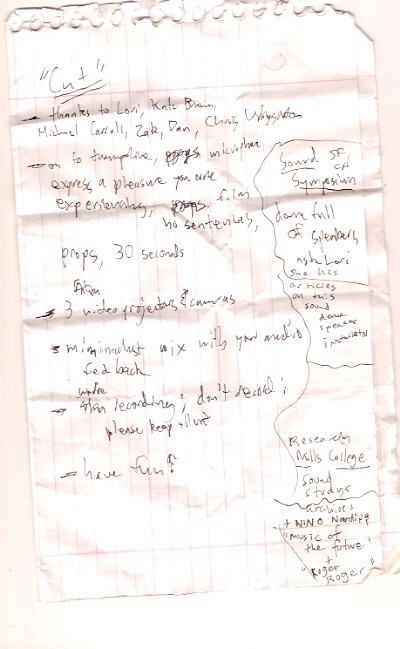 "Cut"
thanks to Lori, Kate Braun,
Michael Carroll, Zak, Dan, Chris
on to trampoline, microphone
express a pleasure you are
experiencing, film
no sentences,
props, 30 seconds
3 video projectors & cameras
minimulist mix with your audio
feed back
we're
recording; don't record;
please keep silent
have fun!
Sound SF,
CA
Symposium
dome full
of speakers
ask Lori
she has
articles
on this
sound
dome
speaker
installation
Research
Mills College
Sound
studys
archives
+ NINO Nardini
"music of
the future"
+
"Roger
Roger"